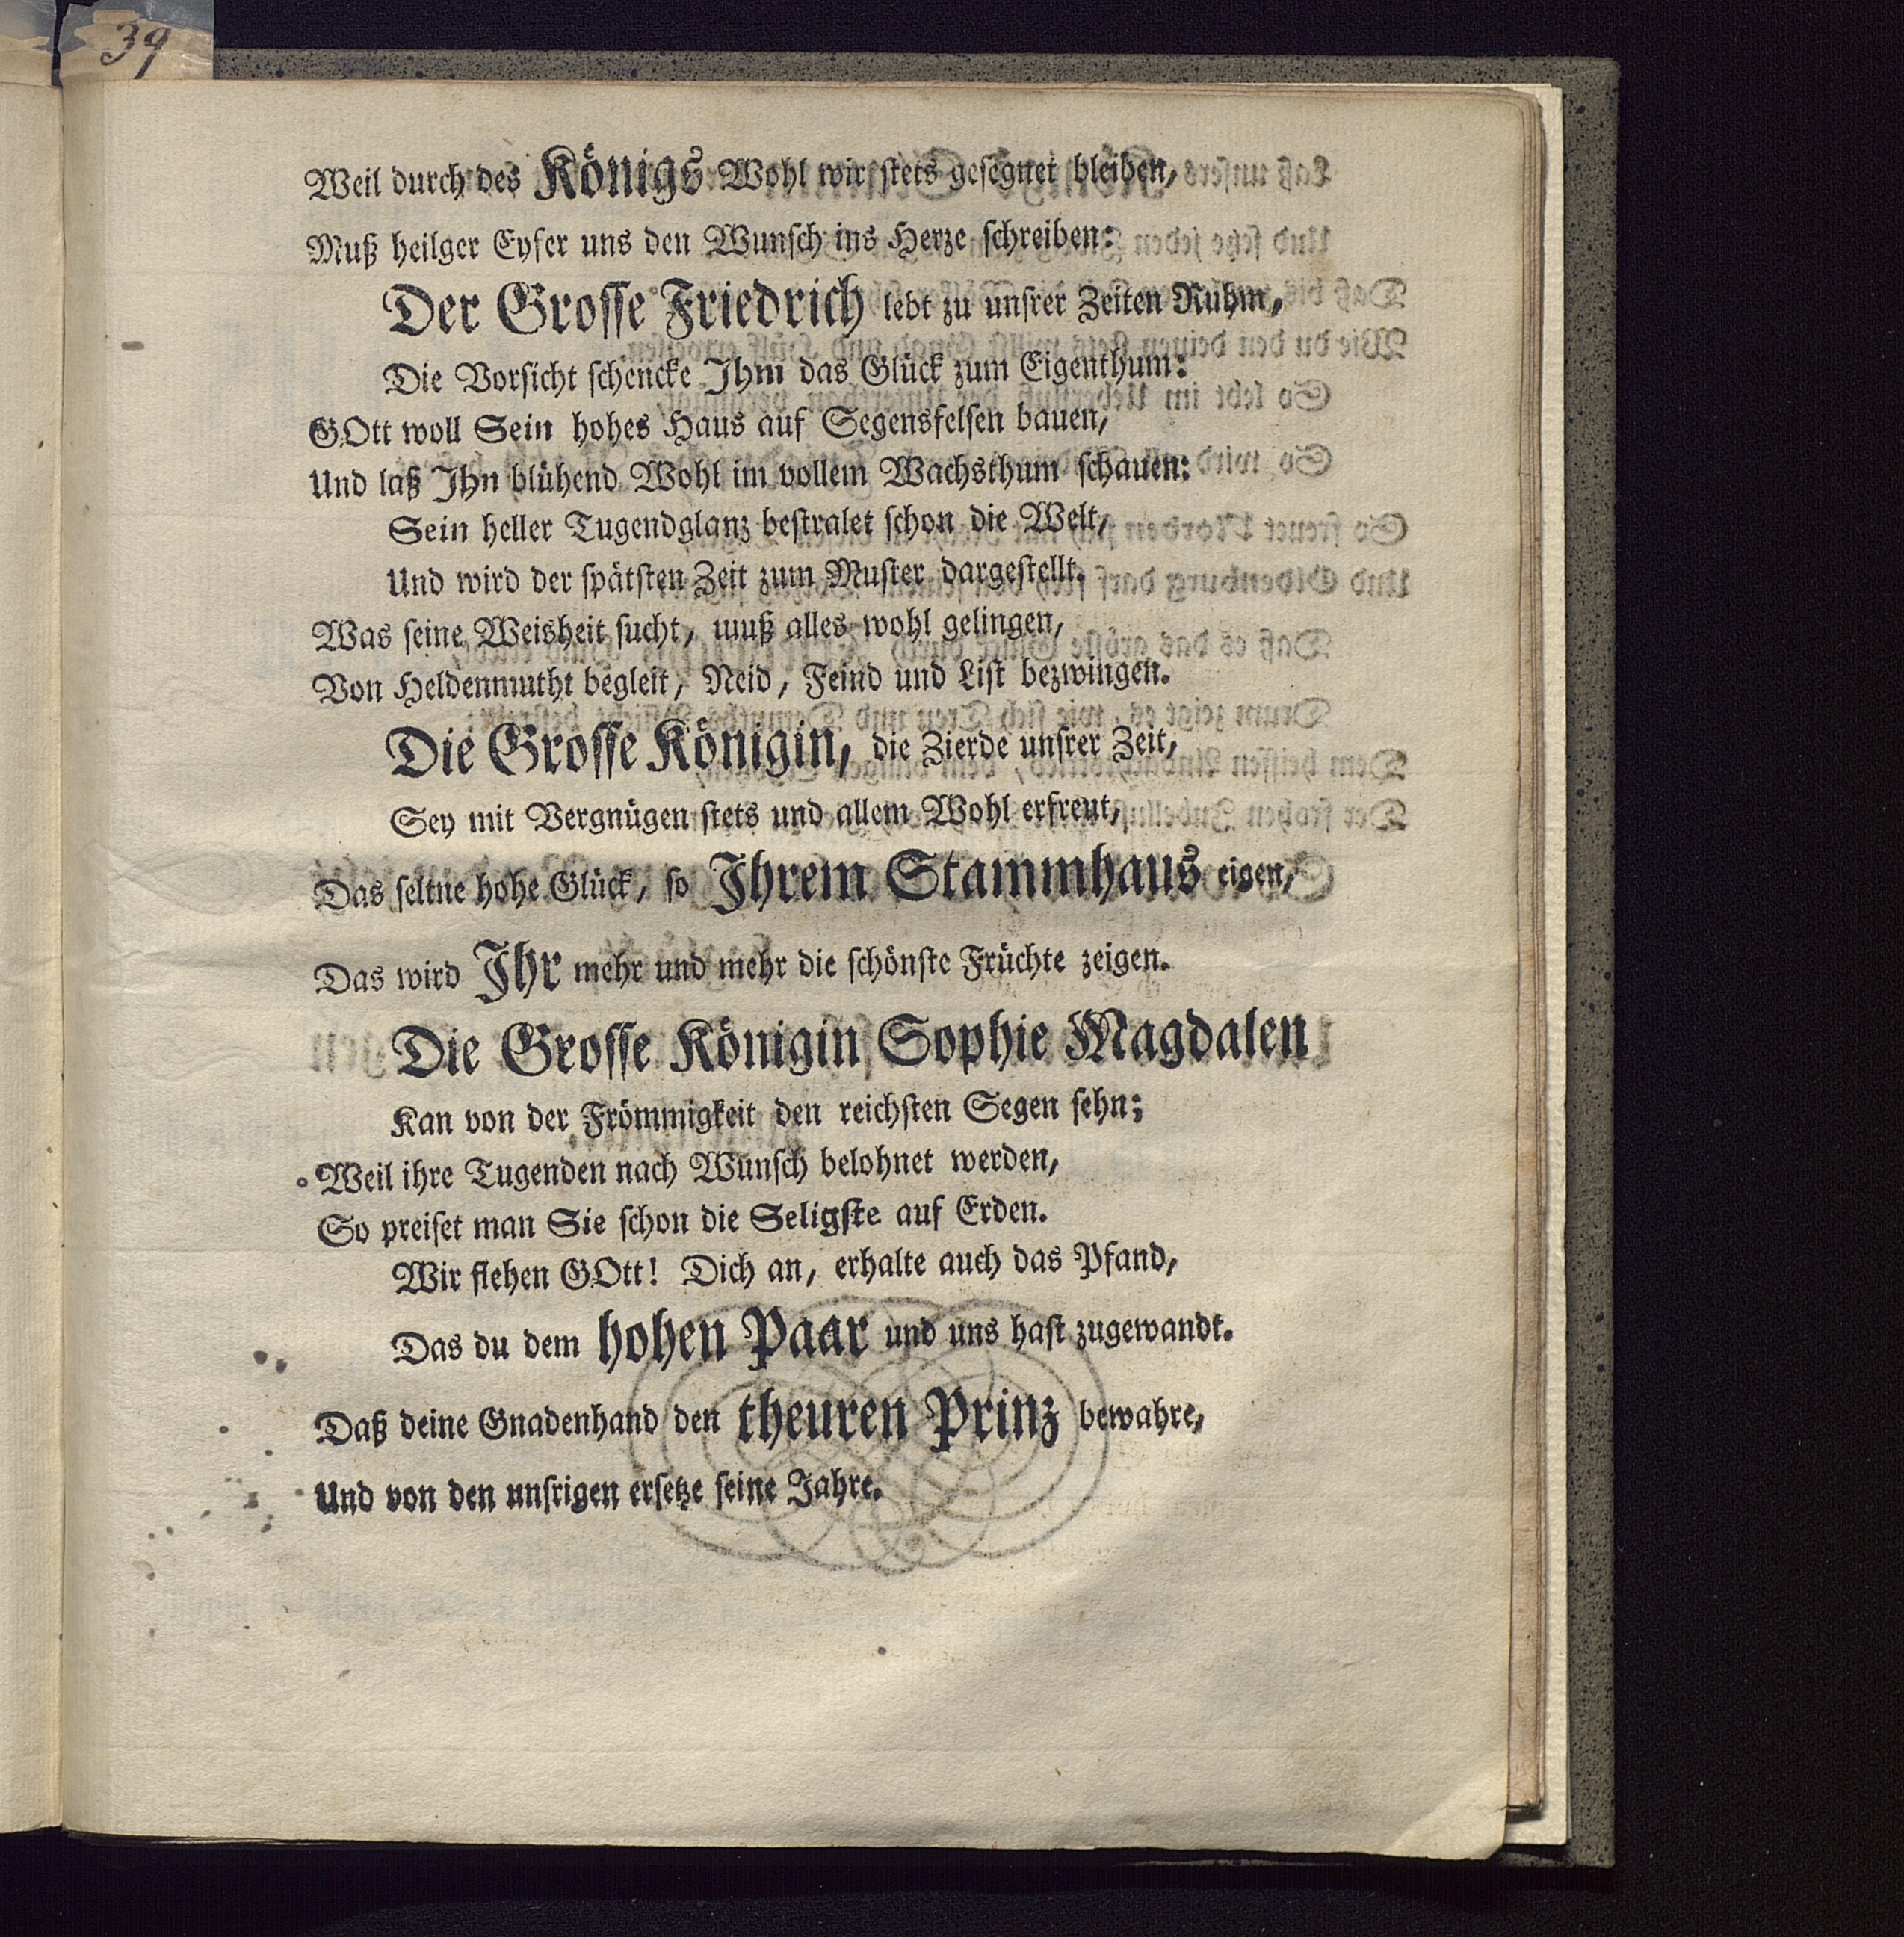 39
Weil durch des Königs Wohl wir stets gesegnet bleiben,
Muß heilger Eyfer uns den Wunsch ins Herze schreiben:
Der Grosse Friedrich lebt zu unsrer Zeiten Ruhm,
Die Vorsicht schencke Ihm das Glück zum Eigenthum:
GOtt woll Sein hohes Haus auf Segensfelsen bauen,
Und laß Ihn blühend Wohl im vollem Wachsthum schauen:
Sein heller Tugendglanz bestralet schon die Welt,
Und wird der spätsten Zeit zum Muster dargestellt.
Was seine Weisheit sucht, muß alles wohl gelingen,
Von Heldenmutht begleit, Neid, Feind und List bezwingen.
Die Grosse Königin, die Zierde unsrer Zeit,
Sey mit Vergnügen stets und allem Wohl erfreut,
Das seltne hohe Glück, so Ihrem Stammhaus eigen,
Das wird Ihr mehr und mehr die schönste Früchte zeigen.
Die Grosse Königin Sophie Magdalen
Kan von der Frömmigkeit den reichsten Segen sehn;
Weil ihre Tugenden nach Wunsch belohnet werden,
So preiset man Sie schon die Seligste auf Erden.
Wir flehen GOtt! Dich an, erhalte auch das Pfand,
Das du dem hohen Paar und uns hast zugewandt.
Daß deine Gnadenhand den theuren Prinz bewahre,
Und von den unsrigen ersetze seine Jahre.